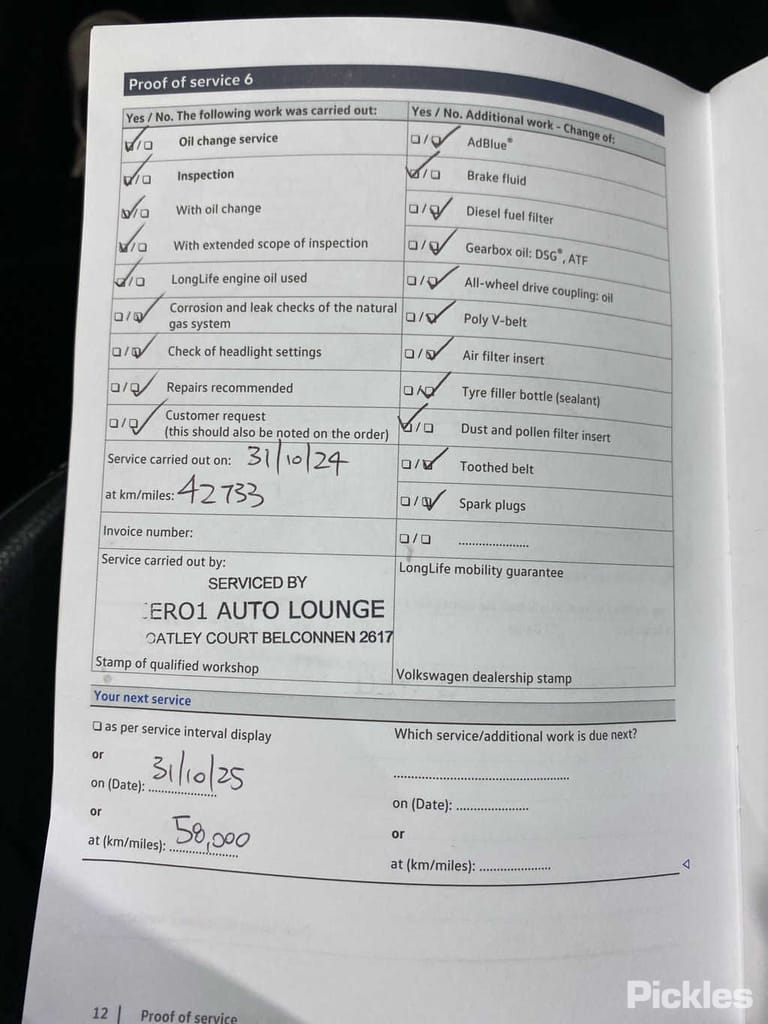 Proof of service 6
Yes / No. The following work was carried out:
Oil change service
Inspection
With oil change
With extended scope of inspection
LongLife engine oil used
Corrosion and leak checks of the natural
gas system
Check of headlight settings
Repairs recommended
Customer request
(this should also be noted on the order)
Service carried out on: 31/10/24
at km/miles: 42733
Invoice number:
Service carried out by:
SERVICED BY
ERO1 AUTO LOUNGE
OATLEY COURT BELCONNEN 2617
Stamp of qualified workshop
Yes / No. Additional work - Change of:
AdBlue®
Brake fluid
Diesel fuel filter
Gearbox oil: DSG®, ATF
All-wheel drive coupling: oil
Poly V-belt
Air filter insert
Tyre filler bottle (sealant)
Dust and pollen filter insert
Toothed belt
Spark plugs
LongLife mobility guarantee
Volkswagen dealership stamp
Your next service
as per service interval display
or
on (Date): 31/10/25
or
at (km/miles): 58,000
Which service/additional work is due next?
on (Date):
or
at (km/miles):
12 | Proof of service
Pickles